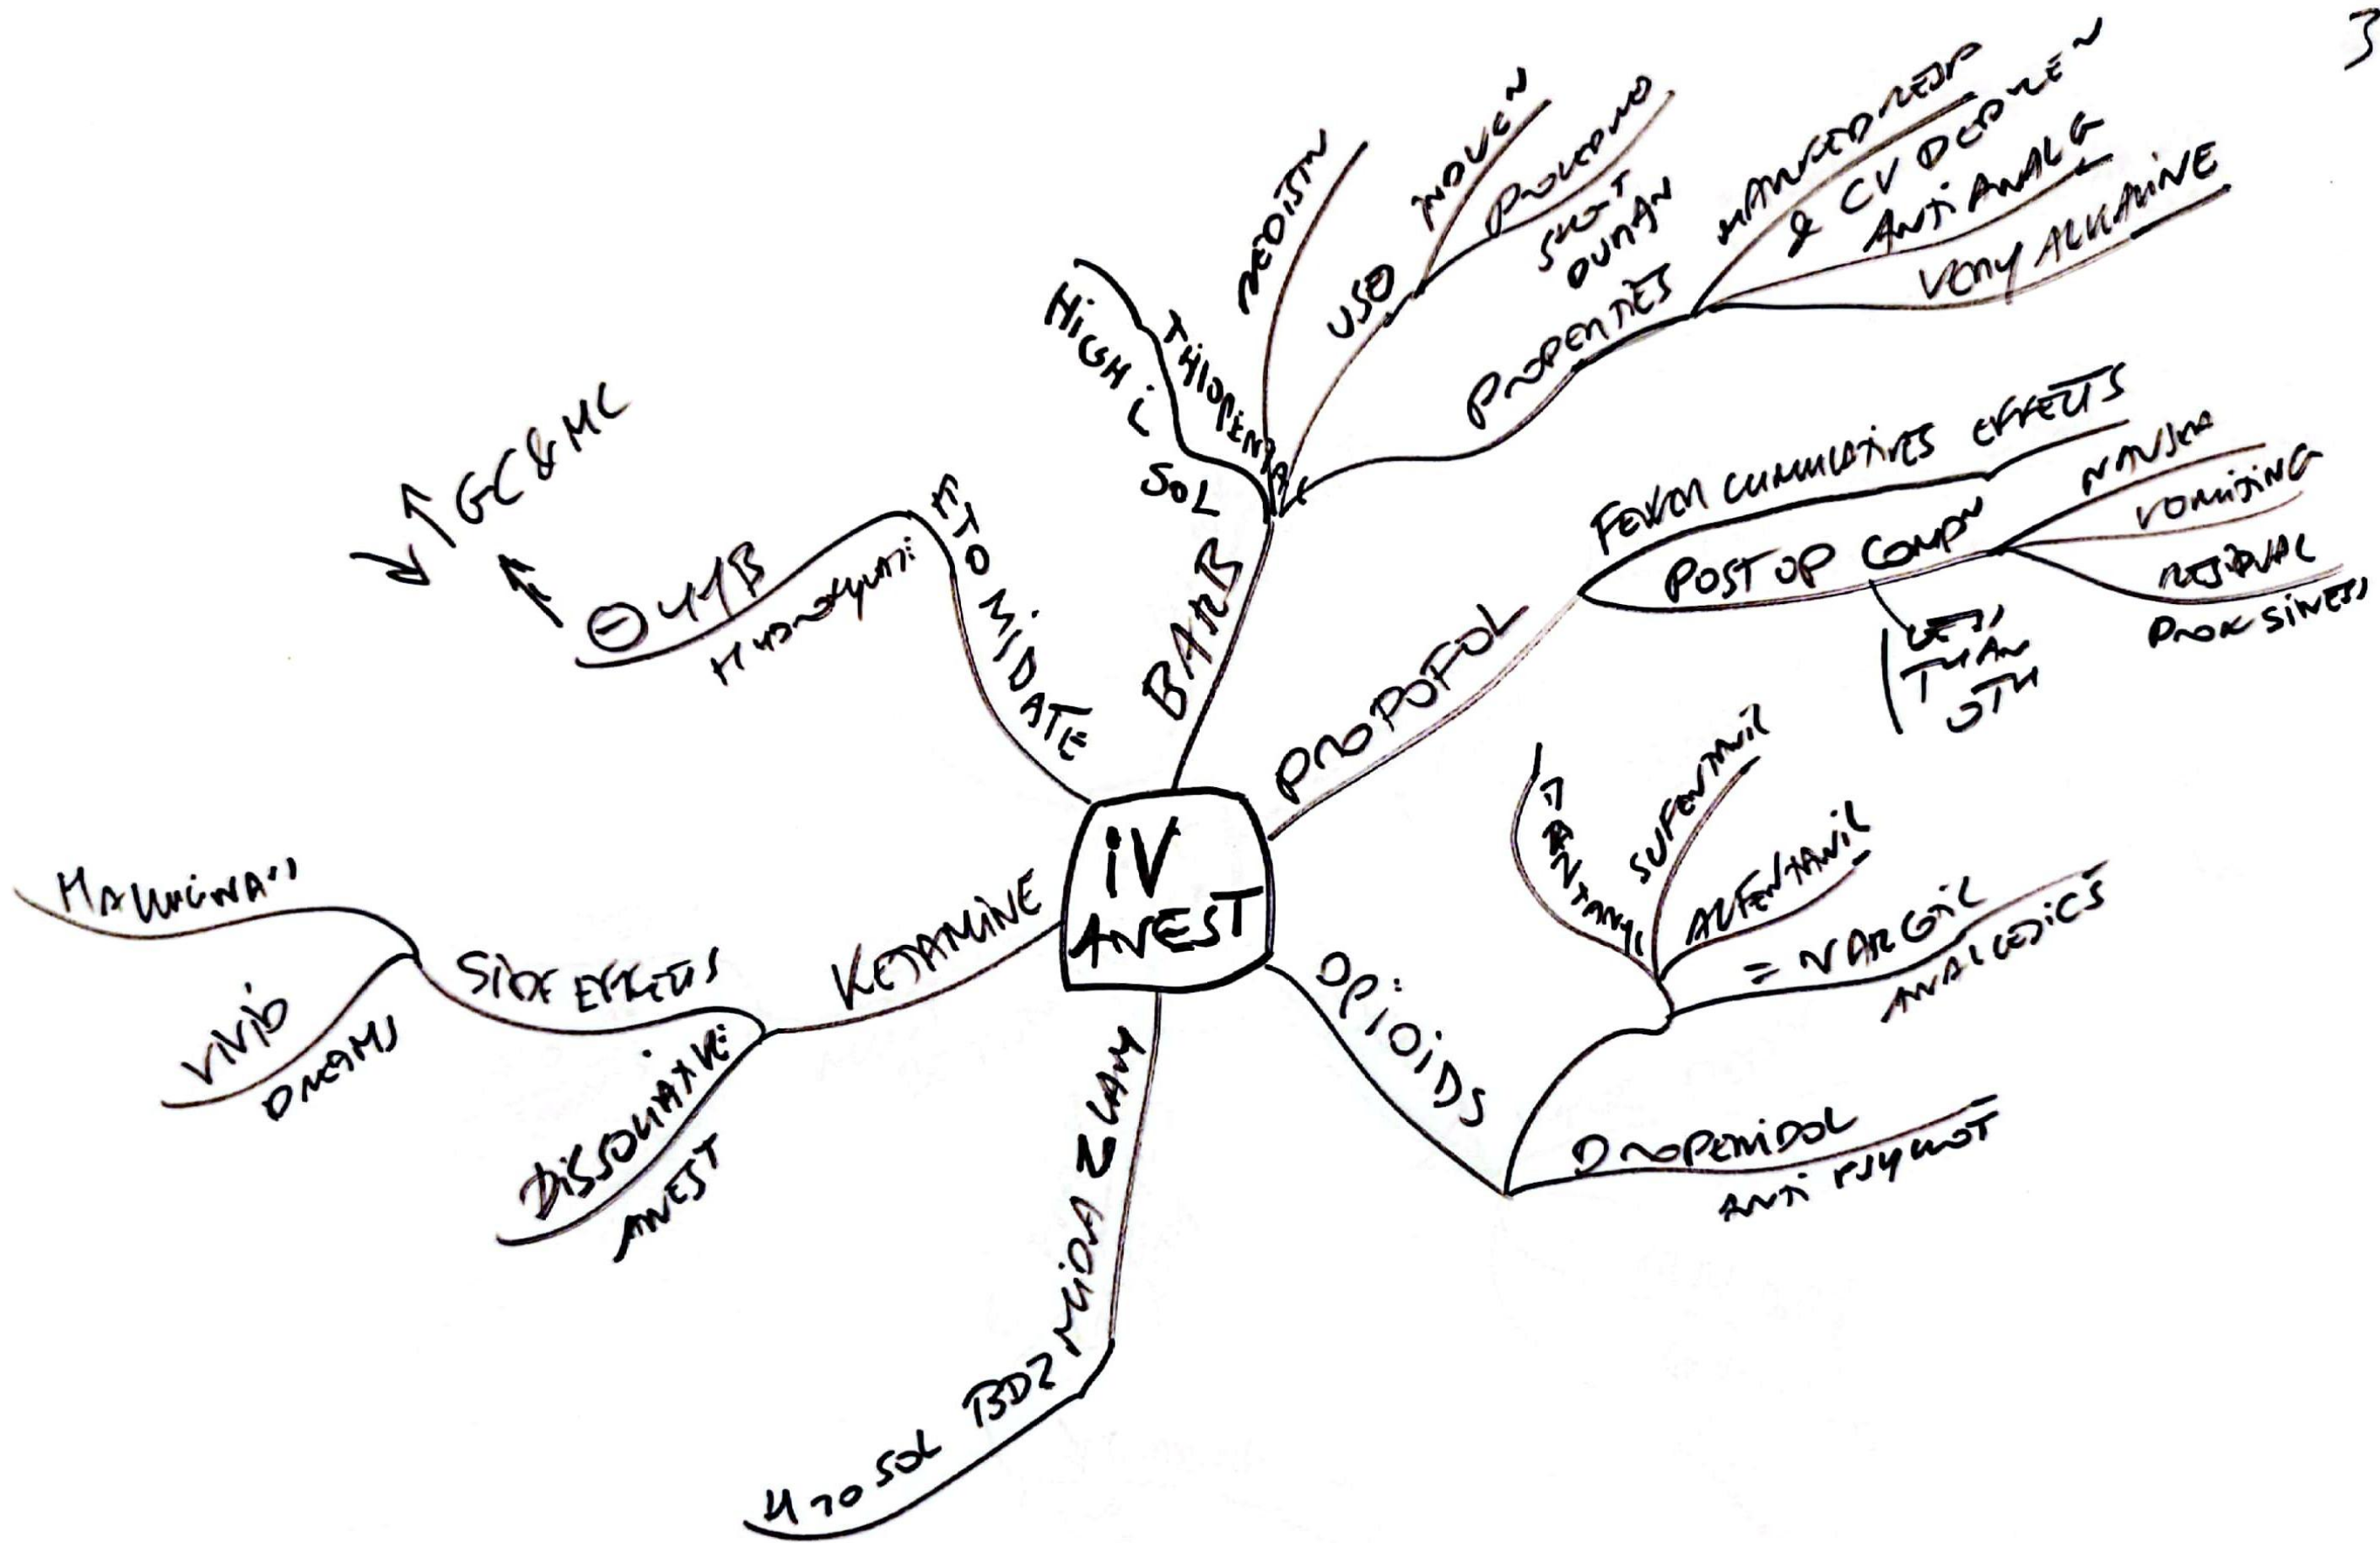 3
IV
ANEST
BARB
THIOPENTAL
HIGH L
SOL
REDISTN
USE
INDUCN
SHORT
DURAN
PROPERTIES
MARKED RESP
& CV DEPREN
ANTI ANALG
VERY ALKALINE
PROPOFOL
FEWER CUMMULATIVES EFFECTS
POST OP COMPN
LESS
THAN
OTH
NAUSEA
VOMITING
RESIDUAL
DROWSINESS
OPIOIDS
FANTANYL
SUFENTANIL
ALFENTANIL
= NARCOTIC
ANALGESICS
DROPERIDOL
ANTI PSYCHOT
MIDAZLAM
BDZ
H2O SOL
KETAMINE
SIDE EFFECTS
HALLUCINA"
VIVID
DREAMS
DISSOCIATIVE
ANEST
ETOMIDATE
⊖ 11B
HYDROXYLATI
↑
↓↑ GC & MC